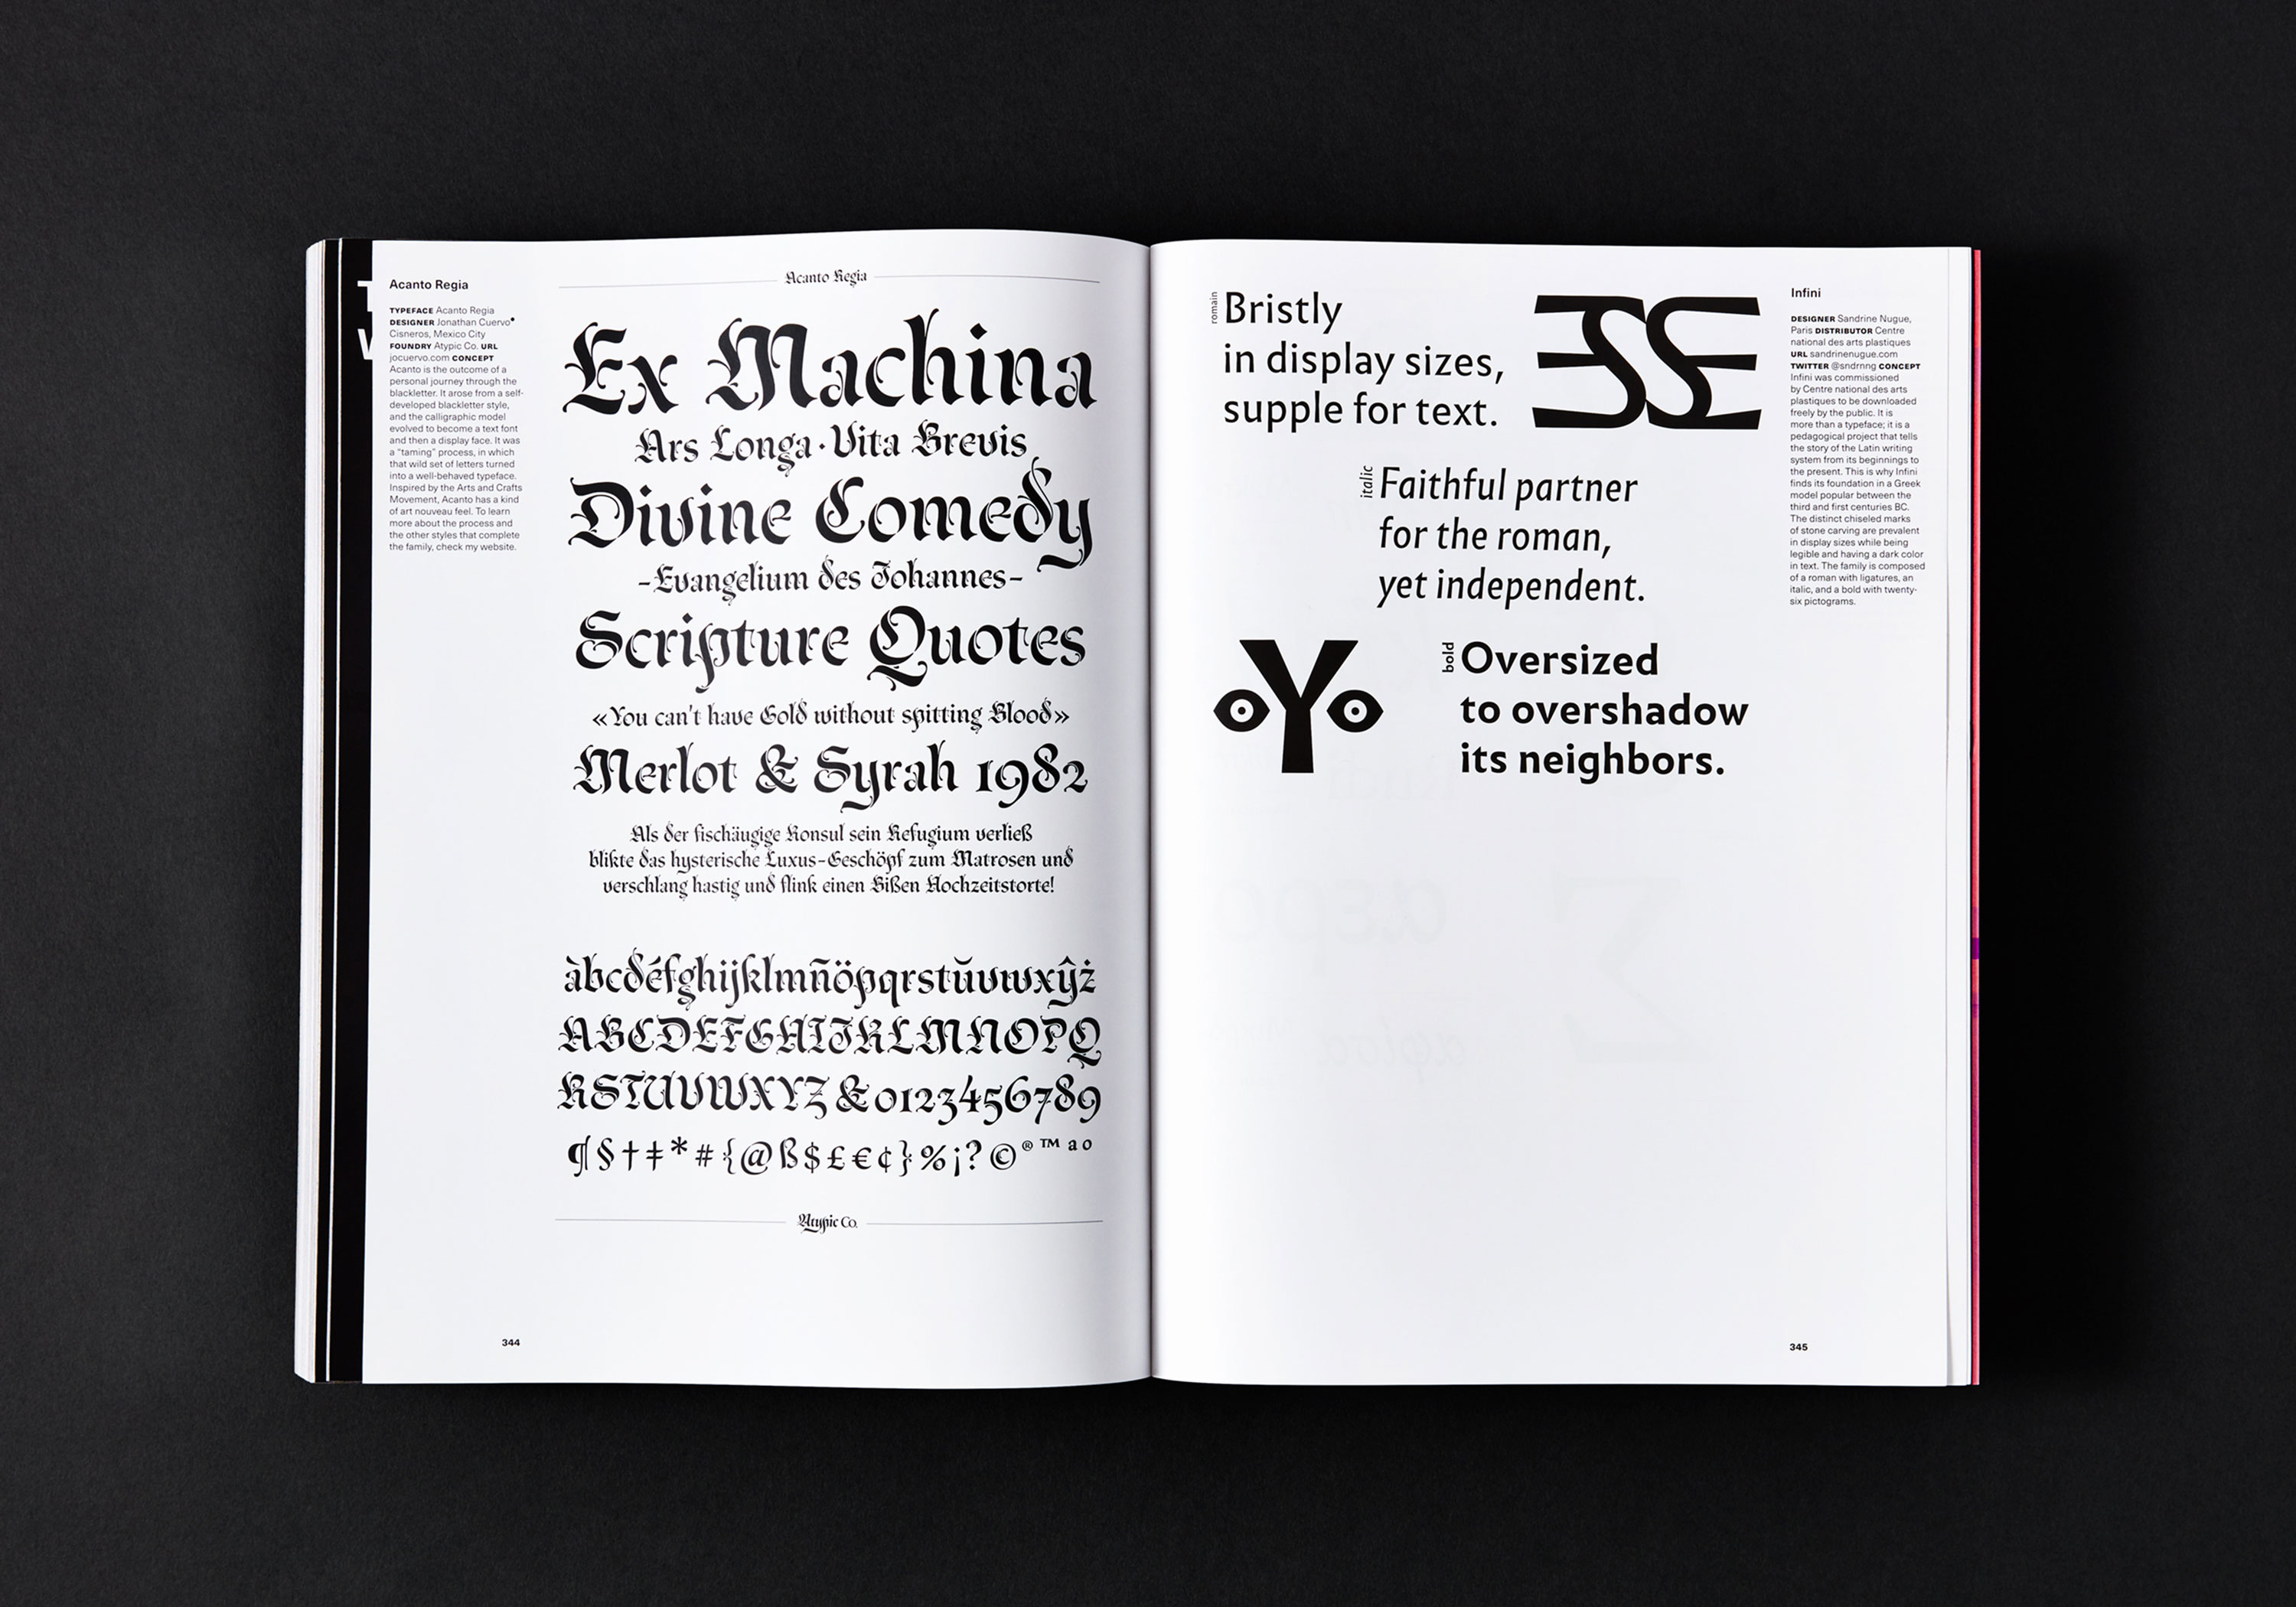 T
W
Acanto Regia
TYPEFACE Acanto Regia
DESIGNER Jonathan Cuervo•
Cisneros, Mexico City
FOUNDRY Atypic Co. URL
jocuervo.com CONCEPT
Acanto is the outcome of a
personal journey through the
blackletter. It arose from a self-
developed blackletter style,
and the calligraphic model
evolved to become a text font
and then a display face. It was
a “taming” process, in which
that wild set of letters turned
into a well-behaved typeface.
Inspired by the Arts and Crafts
Movement, Acanto has a kind
of art nouveau feel. To learn
more about the process and
the other styles that complete
the family, check my website.
Acanto Regia
Ex Machina
Ars Longa·Vita Brevis
Divine Comedy
-Evangelium des Johannes-
Scripture Quotes
«You can't have Gold without spitting Blood»
Merlot & Syrah 1982
Als der fischäugige Konsul sein Refugium verließ
blikte das hysterische Luxus-Geschöpf zum Matrosen und
verschlang hastig und flink einen Bißen Hochzeitstorte!
àbcdéfghijklmñöpqrstŭvwxŷż
ABCDEFGHIJKLMNOPQ
RSTUVWXYZ&0123456789
¶§†‡*#{@ß$£€¢}%¡?©®™ao
Atypic Co.
344
romain
Bristly
in display sizes,
supple for text.
italic
Faithful partner
for the roman,
yet independent.
oYo
bold
Oversized
to overshadow
its neighbors.
Infini
DESIGNER Sandrine Nugue,
Paris DISTRIBUTOR Centre
national des arts plastiques
URL sandrinenugue.com
TWITTER @sndrnng CONCEPT
Infini was commissioned
by Centre national des arts
plastiques to be downloaded
freely by the public. It is
more than a typeface; it is a
pedagogical project that tells
the story of the Latin writing
system from its beginnings to
the present. This is why Infini
finds its foundation in a Greek
model popular between the
third and first centuries BC.
The distinct chiseled marks
of stone carving are prevalent
in display sizes while being
legible and having a dark color
in text. The family is composed
of a roman with ligatures, an
italic, and a bold with twenty-
six pictograms.
345